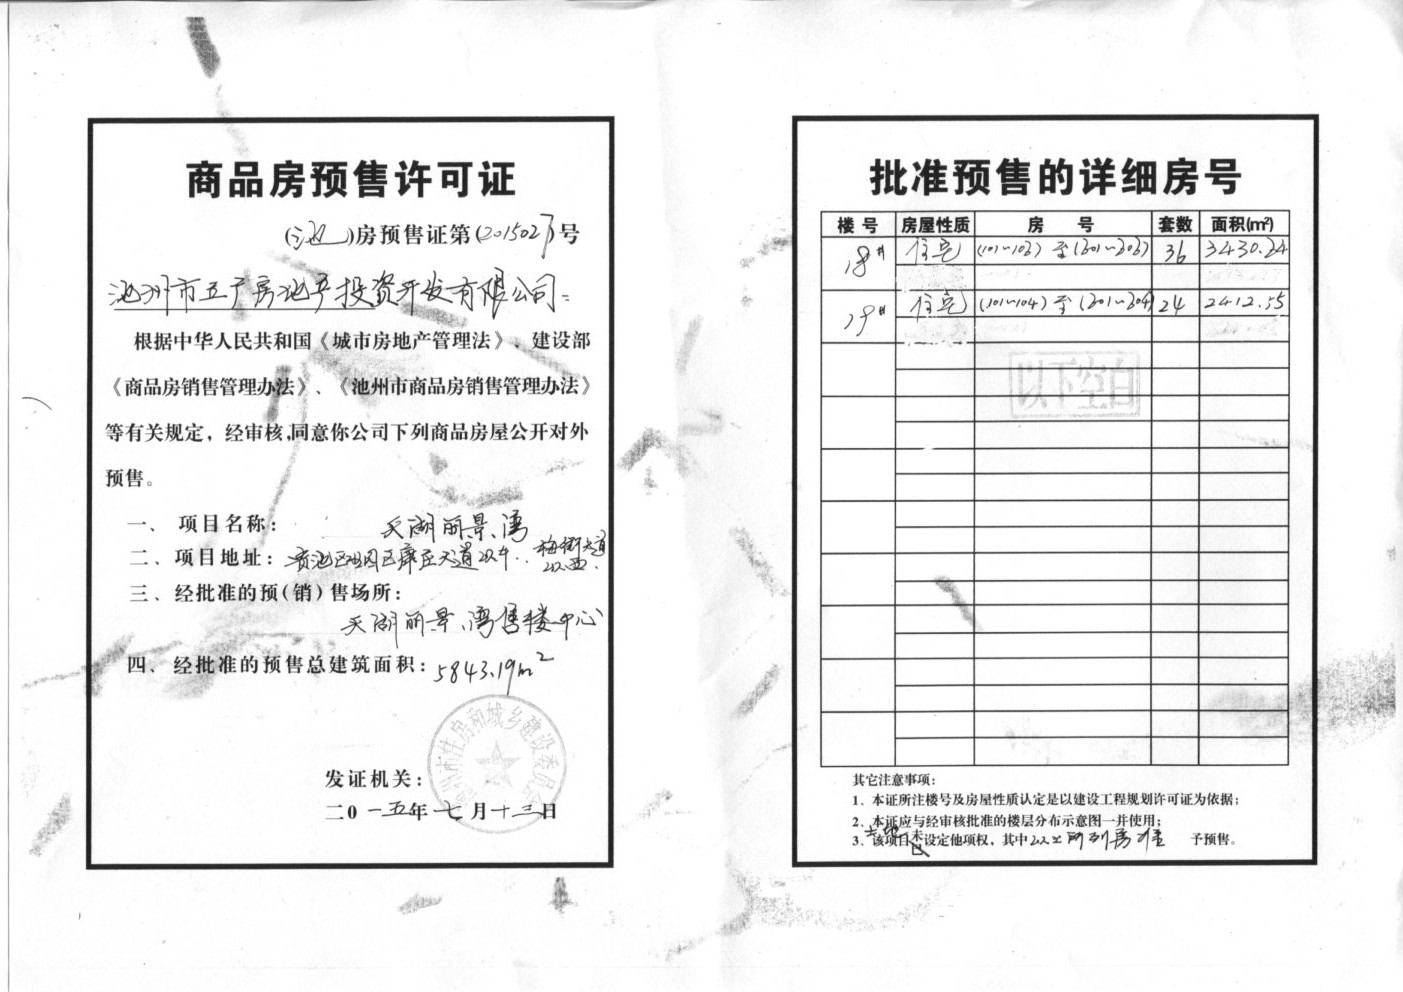 商品房预售许可证
(池)房预售证第(2015027)号
池州市五广房地产投资开发有限公司:
根据中华人民共和国《城市房地产管理法》、建设部
《商品房销售管理办法》、《池州市商品房销售管理办法》
等有关规定，经审核,同意你公司下列商品房屋公开对外
预售。
一、项目名称：天湖丽景湾
二、项目地址：贵池区 大道以 梅街大道以西.
三、经批准的预(销)售场所：
天湖丽景湾售楼中心
四、经批准的预售总建筑面积：5843.19m²
池州市住房和城乡建设委员会
发证机关：
二0一五年七月十三日
批准预售的详细房号
楼号 房屋性质 房号 套数 面积(m²)
18# 住宅 36 3430.24
19# 住宅 (101~104) 至 24 2412.55
以下空白
其它注意事项：
1、本证所注楼号及房屋性质认定是以建设工程规划许可证为依据；
2、本证应与经审核批准的楼层分布示意图一并使用；
3、该项目土地未已设定他项权，其中以上所列房准予预售。